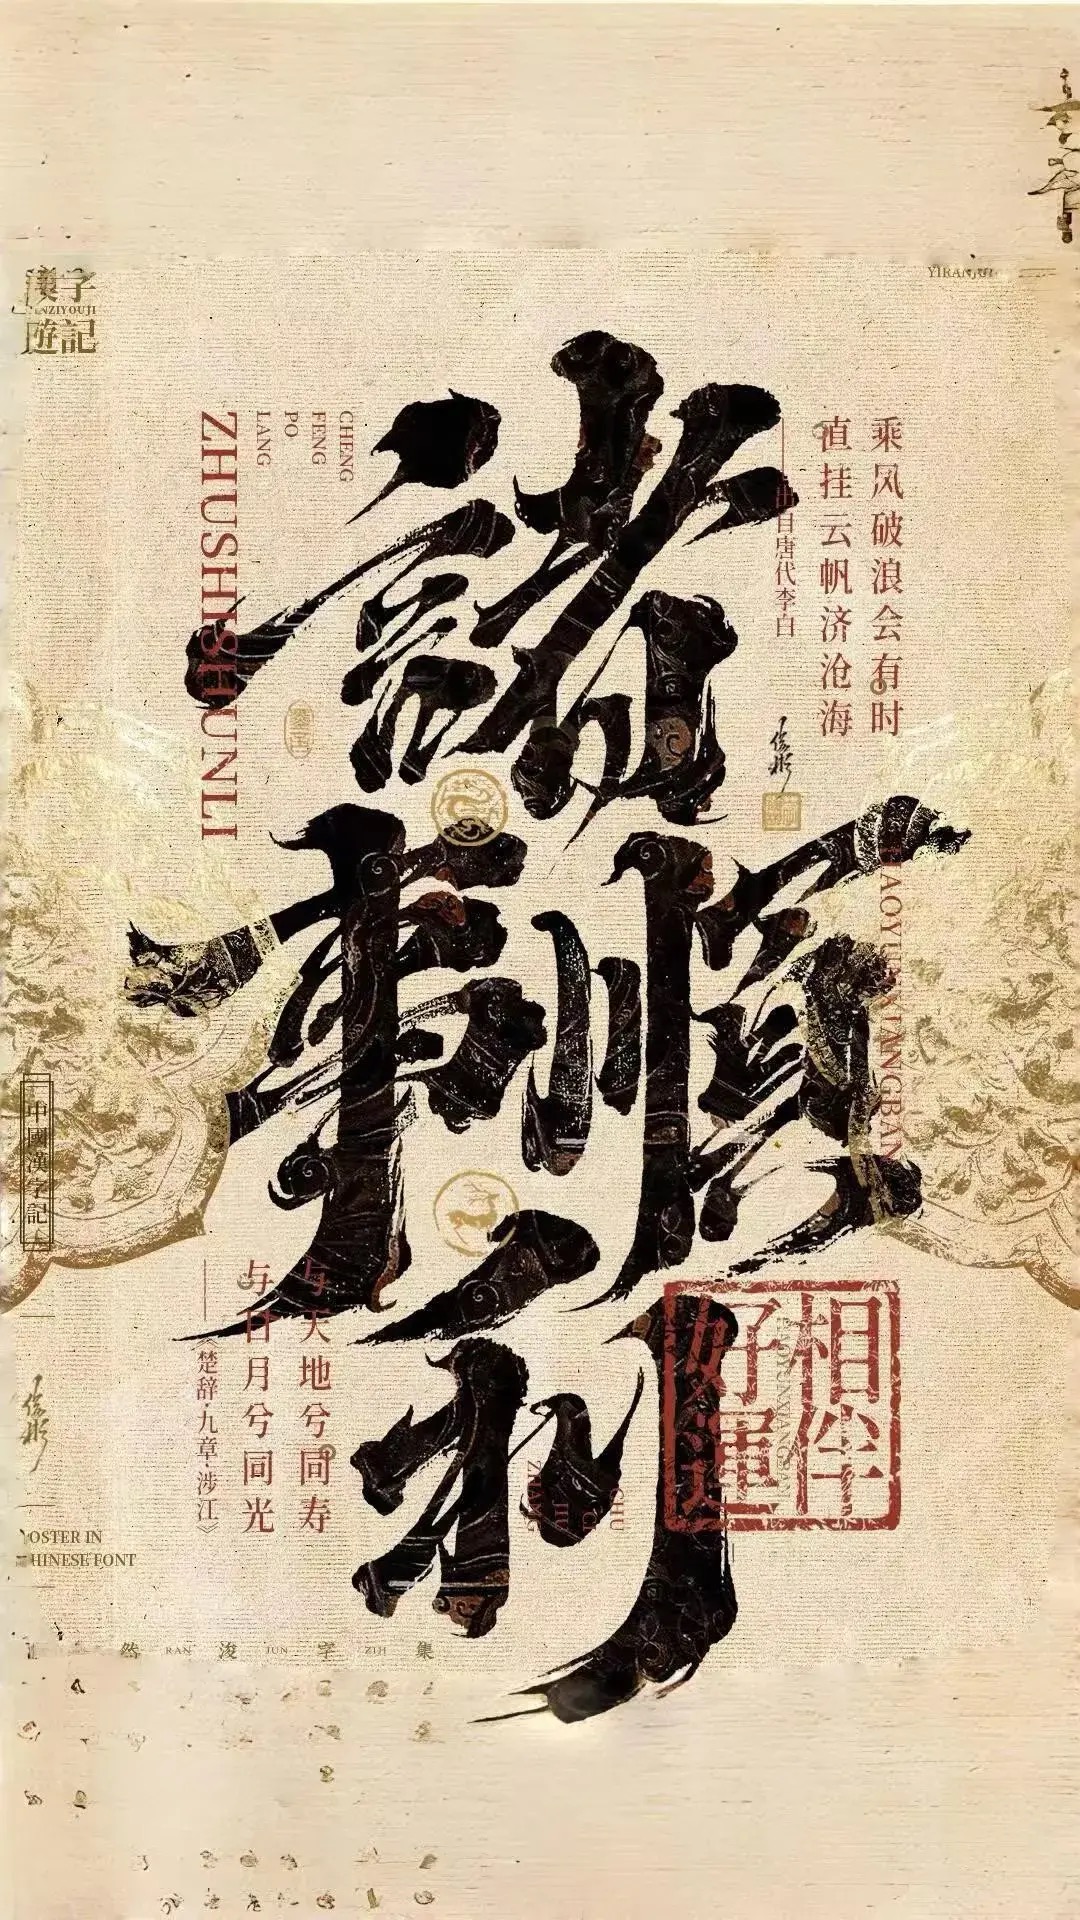 漢字
HANZIYOUJI
遊記
諸
事順
利
ZHUSHISHUNLI
CHENG
FENG
PO
LANG
乘风破浪会有时
直挂云帆济沧海
——出自唐代李白
HAOYUNXIANGBAN
中國漢字記
与天地兮同寿
与日月兮同光
——《楚辞·九章·涉江》
相伴
好運
HAOYUNXIANGBAN
CHU
CI
JIU
ZHANG
POSTER IN
CHINESE FONT
然 RAN 浚 JUN 字 ZIH 集